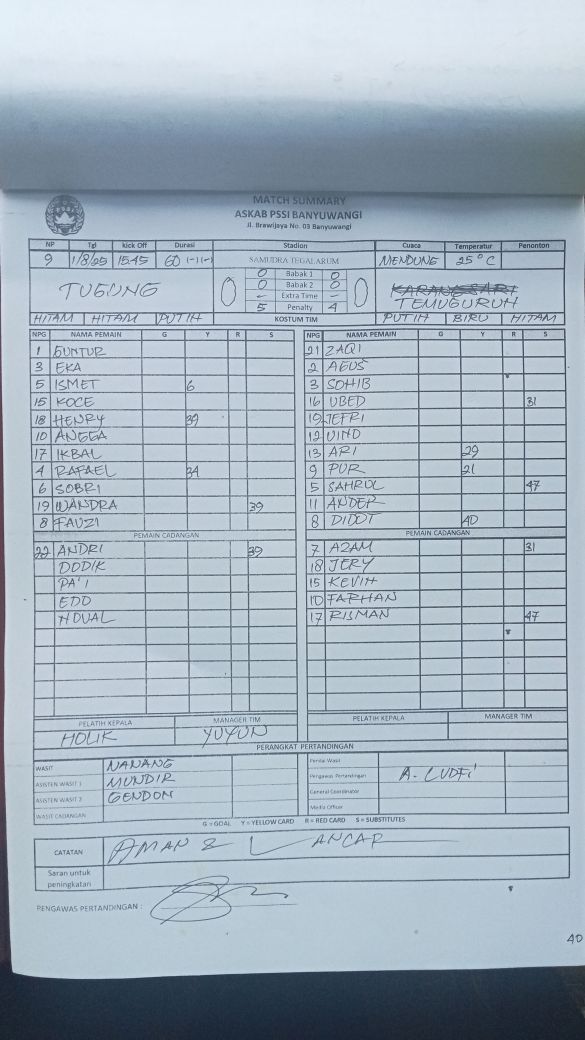 MATCH SUMMARY
ASKAB PSSI BANYUWANGI
Jl. Brawijaya No. 03 Banyuwangi
NP Tgl kick Off Durasi Stadion Cuaca Temperatur Penonton
9 1/8/25 15.45 60 (-)(-) SAMUDRA TEGALARUM MENDUNG 25°C
TUGUNG 0 0 Babak 1 0 0 TEMUGURUH
0 Babak 2 0
- Extra Time -
5 Penalty 4
HITAM HITAM PUTIH KOSTUM TIM PUTIH BIRU HITAM
NPG NAMA PEMAIN G Y R S NPG NAMA PEMAIN G Y R S
1 GUNTUR 21 ZAQI
3 EKA 2 AGUS
5 ISMET 6 3 SOHIB
15 KOCE 16 UBED 31
18 HENRY 39 19 JEFRI
10 ANGGA 12 VIND
17 IKBAL 13 ARI 29
4 RAFAEL 34 9 PUR 21
6 SOBRI 5 SAHRUL 47
19 WANDRA 39 11 ANDER
8 FAUZI 8 DIDOT 40
PEMAIN CADANGAN PEMAIN CADANGAN
22 ANDRI 39 7 AZAM 31
DODIK 18 JERY
PA'I 15 KEVIN
EDO 10 FARHAN
NOVAL 17 RISMAN 47
PELATIH KEPALA MANAGER TIM PELATIH KEPALA MANAGER TIM
HOLIK YUYUN
PERANGKAT PERTANDINGAN
WASIT NANANG Penilai Wasit
ASISTEN WASIT 1 MUNDIR Pengawas Pertandingan A. LUDFI
ASISTEN WASIT 2 GENDON General Coordinator
WASIT CADANGAN Media Officer
G = GOAL Y = YELLOW CARD R = RED CARD S = SUBSTITUTES
CATATAN AMAN & LANCAR
Saran untuk
peningkatan
PENGAWAS PERTANDINGAN :
40